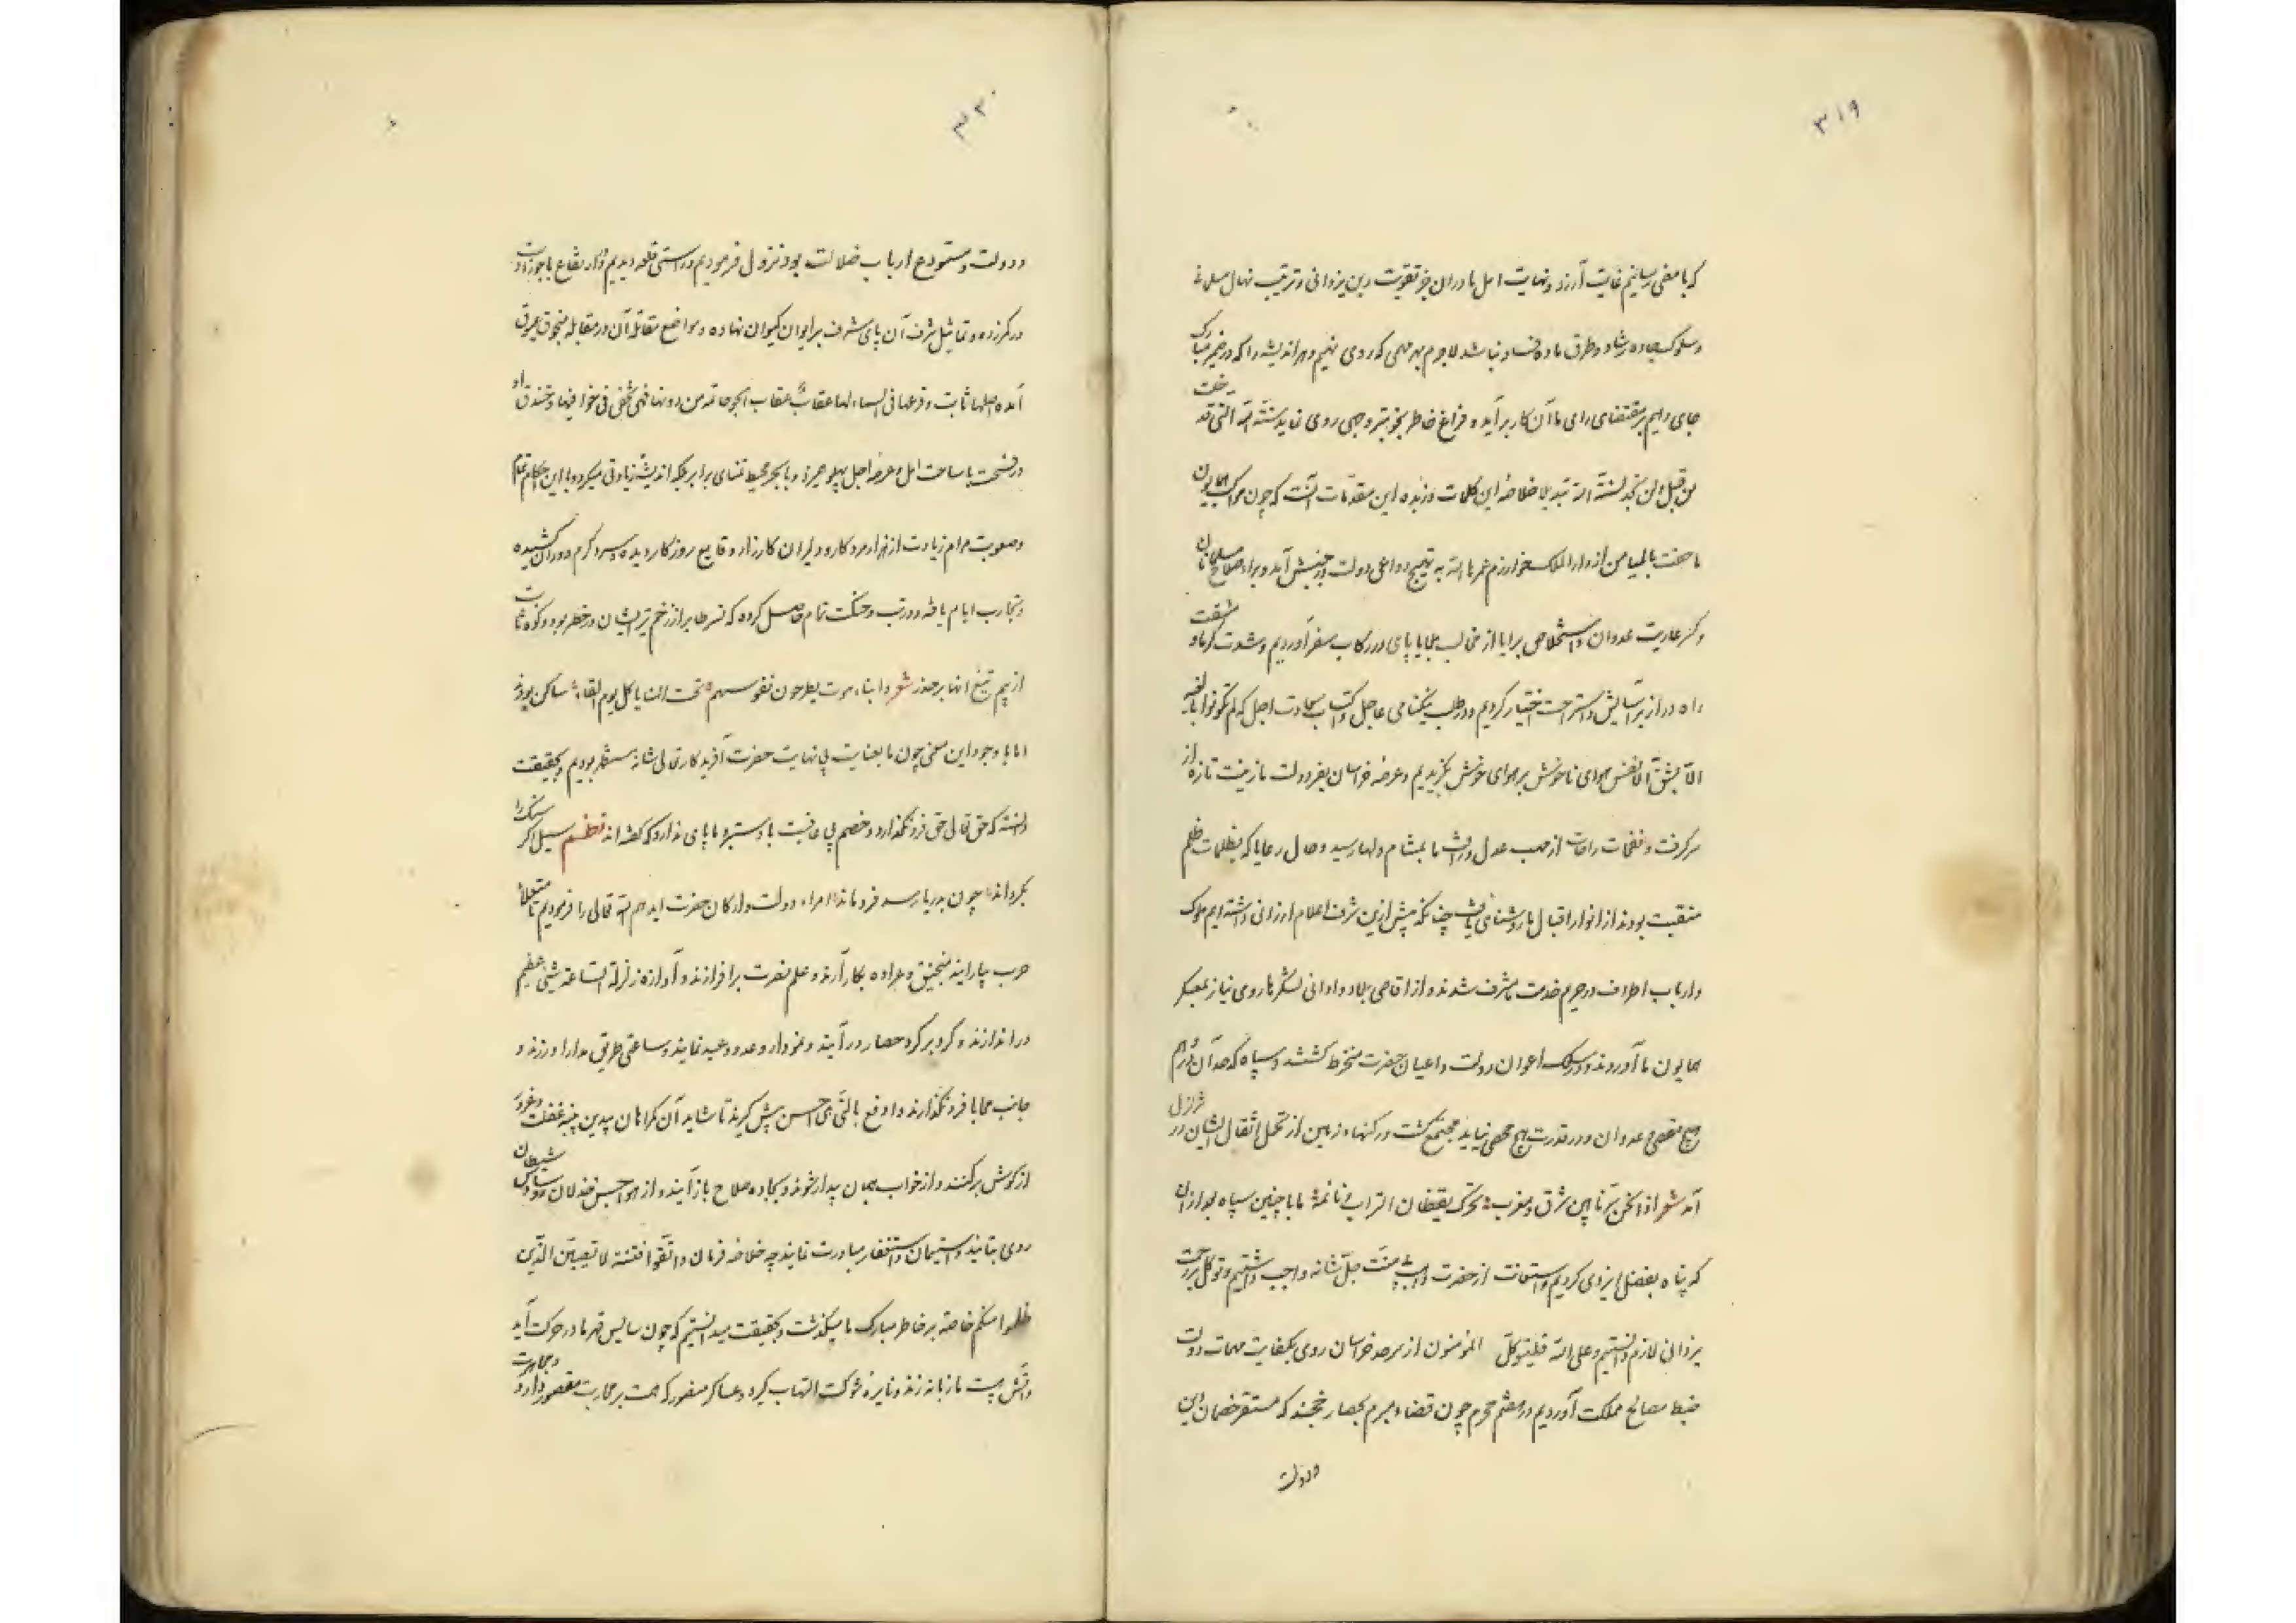 ۳۱۹
که بامضی رسانیم غایت آرزو و نهایت امل ما در آن جز تقویت دین یزدانی و ترتیب نهال مسلمانی
و سلوک جاده رشاد و طرق ماده فساد نباشد لاجرم بهر مهمی که روی نهیم و هر اندیشه را که در ضمیر مبارک
جای دهیم بر مقتضای رای ما آن کار برآید و فراغ خاطر بخوبتر وجهی روی نماید سنة الله التی قد خلت
من قبل و لن تجد لسنة الله تبدیلا خلاصه این کلمات و زبده این مقدمات آنست که چون مواکب همایون
ما حفت بالمیامن از دار الملک خوارزم عمرها الله به تهییج دواعی دولت در جنبش آمد و برای صلاح مسلمانان
و کسر عادیت عدوان و استخلاص برایا از مخالب بلایا پای در رکاب سفر آوردیم و شدت گرما و مشقت
راه دراز بر آسایش و استراحت اختیار کردیم و در طلب نیکنامی عاجل و اکتساب سعادت اجل که لم تکونوا بالغیه
الا بشق الانفس هوای ناخوش بر هوای خوش بگزیدیم و عرصه خراسان بفر دولت ما زینت تازه از
سر گرفت و نفحات رافت از مهب عدل و رافت ما بمشام دلها رسید و حال رعایا که بظلمات ظلم
منقبت بودند از انوار اقبال ما روشنای یافت چنانکه پیش ازین شرف اعلام ارزانی داشته ایم ملوک
و ارباب اطراف در حریم خدمت ما مشرف شدند و از اقاصی بلاد و ادانی لشکرها روی نیاز بمعسکر
همایون ما آوردند و در سلک اعوان دولت و اعیان حضرت منخرط گشتند و سپاه که حد آن در فهم
هیچ مقصی و عد آن در قدرت هیچ محصی نیاید مجتمع گشت و رکنها و زمین از تحمل اثقال ایشان در تزلزل
آمد شعر اذا نحن سرنا بین شرق و مغرب تحرک یقظان التراب و نائمه ما با چنین سپاه بعد از آن
که پناه بفضل ایزدی کردیم و استعانت از حضرت واهب بی منت جل شانه واجب داشتیم و توکل بر رحمت
یزدانی لازم دانستیم و علی الله فلیتوکل المؤمنون از سرحد خراسان روی بکفایت مهمات دولت
ضبط مصالح مملکت آوردیم و در هفتم محرم چون قضاء مبرم بحصار خجند که مستقر خصمان دین
و دولت
۳۲۰
و دولت و مستودع ارباب ضلالت بود نزول فرمودیم و راستی قلعه دیدیم در ارتفاع با جوزا دست
در کمر زده و تماثیل شرف آن پای شرف بر ایوان کیوان نهاده و مواضع مقاتل آن در مقابله منجوق عیوق
آمده اصلها ثابت و فرعها فی السماء لها عقاب عقاب الجو حائمة من دونها فهی تخفی فی خوافیها و خندق او
در فسحت با ساحت امل و عرض اجل پهلو میزد و با بحر محیط تمنای برابر بلکه اندیشه زیادتی میکرد و با این احکام تمام
و صعوبت مرام زیادت از هزار مرد کار و دلیران کارزار وقایع روزگار دیده و سرد و گرم دوران کشیده
و تجارب ایام یافته و درتب و حنکت تمام حاصل کرده که نسر طایر از زخم تیر ایشان در خطر بود و کوه ثابت
از بیم تیغ انها بر حذر شعر و ابناء موت یطرحون نفوسهم تحت المنایا کل یوم لقاء ساکن بودند
اما با وجود این معنی چون ما بعنایت بی نهایت حضرت آفریدگار تعالی شانه مستظهر بودیم و بحقیقت
دانسته که حق تعالی حق فرو نگذارد و خصم بی عاقبت با دستبرد ما پای ندارد که گفته اند نظم سیل اگر سنگ را
بگرداند چون بدریا رسد فرو ماند امراء دولت و ارکان حضرت ایدهم الله تعالی را فرمودیم تا متعلا
حرب پیارایند منجنیق و عراده بکار آرند و علم نصرت برافرازند و آوازه زلزلة الساعة شیئ عظیم
دراندازند و گرد بر گرد حصار در آیند و نمودار وعد و وعید نمایند و ساعتی طریق مدارا ورزند و
جانب محابا فرو نگذارند و ادفع بالتی هی احسن پیش گیرند تا شاید آن گمراهان بیدین پنبه غفلت و غرور
از گوش برکنند و از خواب همان بیدار شوند و بجاده صلاح باز آیند و از هواجس خذلان و وساوس شیطان
روی بتابند و استیمان و استغفار مبادرت نمایند چه خلاصه فرمان و اتقوا فتنة لا تصیبن الذین
ظلموا منکم خاصة بر خاطر مبارک ما میگذشت و بحقیقت میدانستیم که چون سایس قهر ما در حرکت آید
و آتش هیبت ما زبانه زند و نایره شوکت التهاب گیرد و عساکر منصور که همت بر محاربت و مجاهدت مقصور دارند